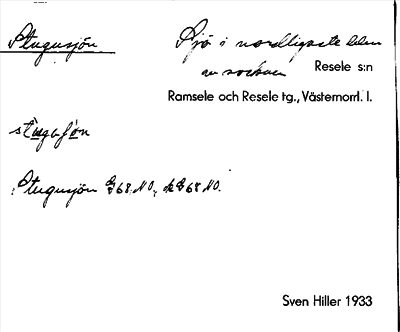 Stugusjön
Sjö i nordligaste delen
av socknen Resele s:n
Ramsele och Resele tg., Västernorrl. l.
Stugusjön G68 NO,
Sven Hiller 1933